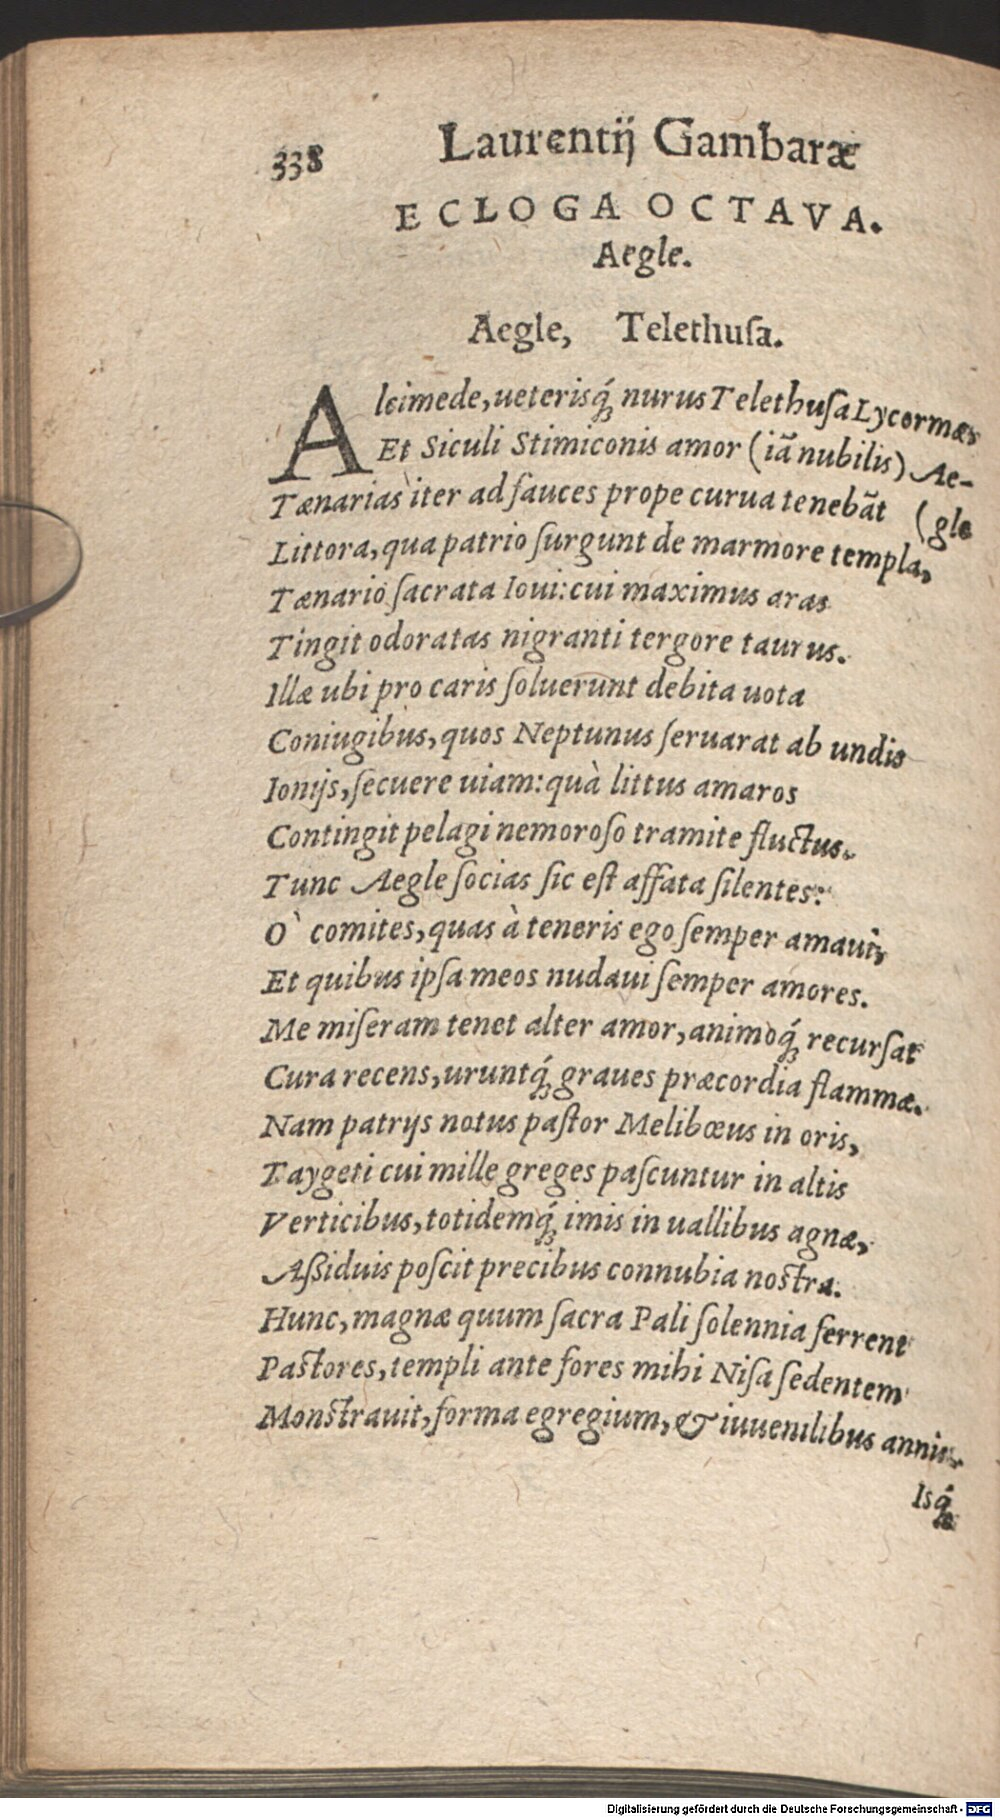 338 Laurentij Gambaræ
ECLOGA OCTAVA.
Aegle.
Aegle, Telethuſa.
Alcimede, ueterisq́; nurus Telethuſa Lycormæ,
Et Siculi Stimiconis amor (iā nubilis) Ae-
Tænarias iter ad fauces prope curua tenebāt (gle
Littora, qua patrio ſurgunt de marmore templa,
Tænario ſacrata Ioui: cui maximus aras
Tingit odoratas nigranti tergore taurus.
Illæ ubi pro caris ſoluerunt debita uota
Coniugibus, quos Neptunus ſeruarat ab undis
Ionijs, ſecuere uiam: quà littus amaros
Contingit pelagi nemoroſo tramite fluctus.
Tunc Aegle ſocias ſic eſt affata ſilentes:
O` comites, quas à teneris ego ſemper amaui,
Et quibus ipſa meos nudaui ſemper amores.
Me miſeram tenet alter amor, animoq́; recurſat
Cura recens, uruntq́; graues præcordia flammæ.
Nam patrijs notus paſtor Melibœus in oris,
Taygeti cui mille greges paſcuntur in altis
Verticibus, totidemq́; imis in uallibus agnæ,
Aßiduis poſcit precibus connubia noſtra.
Hunc, magnæ quum ſacra Pali ſolennia ferrent
Paſtores, templi ante fores mihi Niſa ſedentem
Monſtrauit, forma egregium, & iuuenilibus annis.
Isq́;
Digitalisierung gefördert durch die Deutsche Forschungsgemeinschaft - DFG